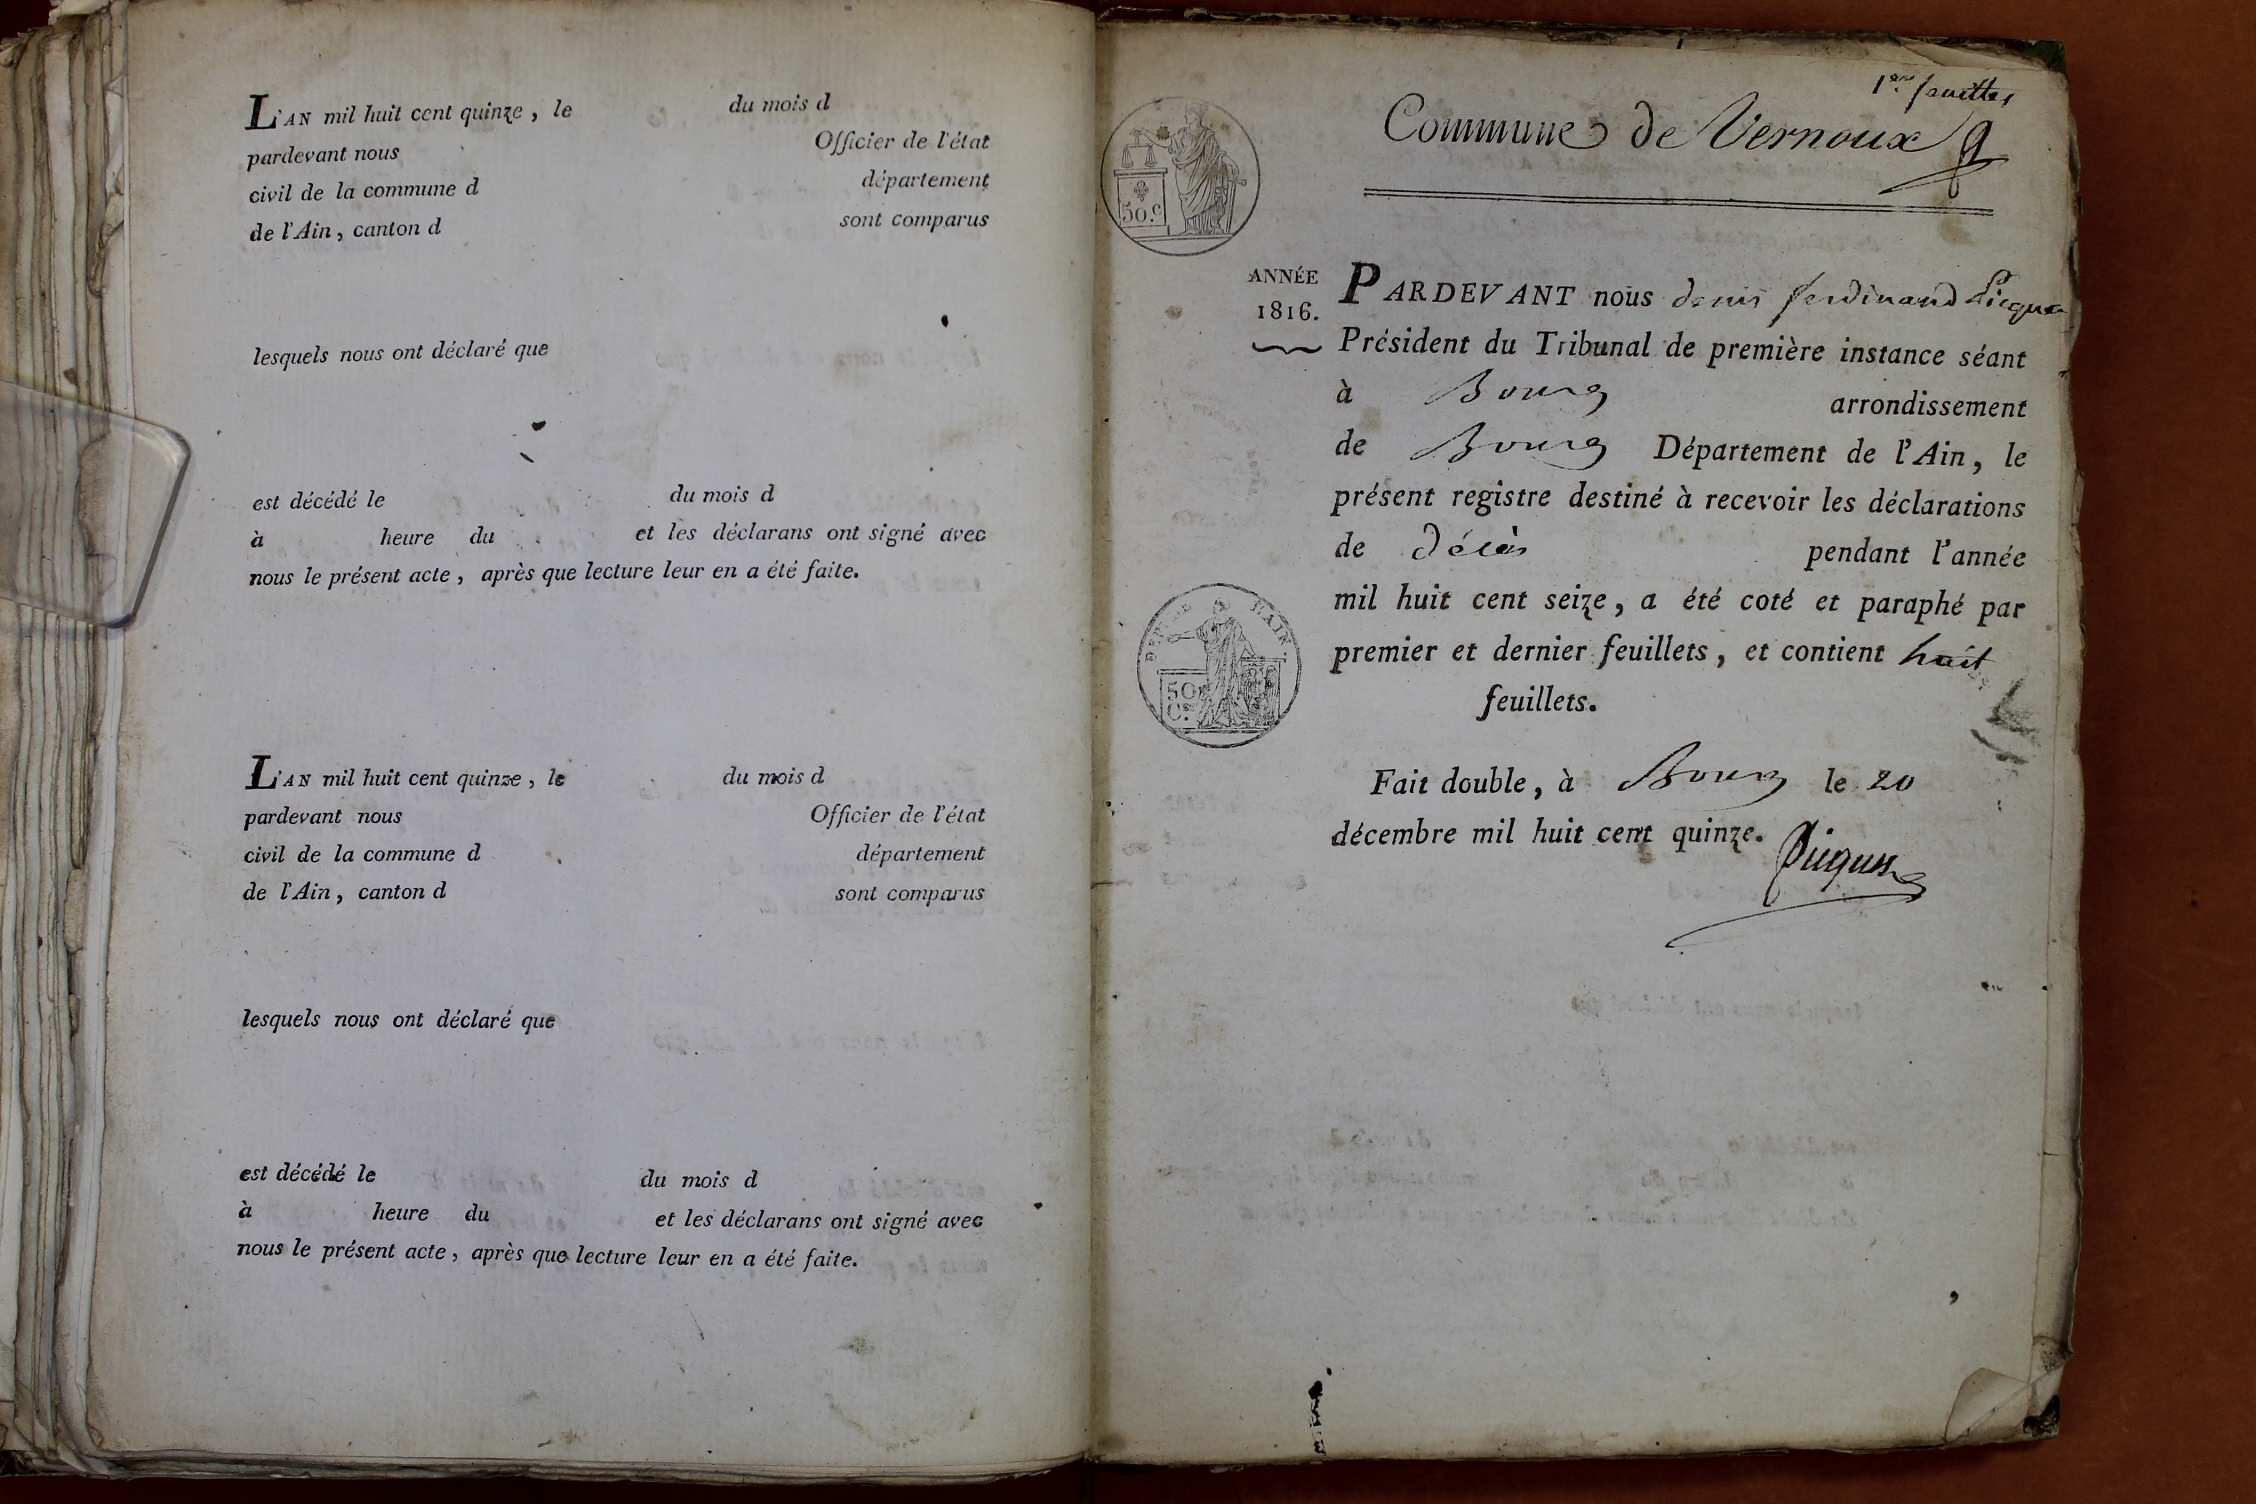 L'AN mil huit cent quinze, le du mois d
pardevant nous Officier de l'état
civil de la commune d département
de l'Ain, canton d sont comparus
lesquels nous ont déclaré que
est décédé le du mois d
à heure du et les déclarans ont signé avec
nous le présent acte, après que lecture leur en a été faite.
L'AN mil huit cent quinze, le du mois d
pardevant nous Officier de l'état
civil de la commune d département
de l'Ain, canton d sont comparus
lesquels nous ont déclaré que
est décédé le du mois d
à heure du et les déclarans ont signé avec
nous le présent acte, après que lecture leur en a été faite.
Commune de Vernoux
50.c
ANNÉE
1816.
PARDEVANT nous denis ferdinand Picquet
Président du Tribunal de première instance séant
à Bourg arrondissement
de Bourg Département de l'Ain, le
présent registre destiné à recevoir les déclarations
de décès pendant l'année
mil huit cent seize, a été coté et paraphé par
premier et dernier feuillets, et contient huit
feuillets.
50
Cs.
Fait double, à Bourg le 20
décembre mil huit cent quinze.
Picquet